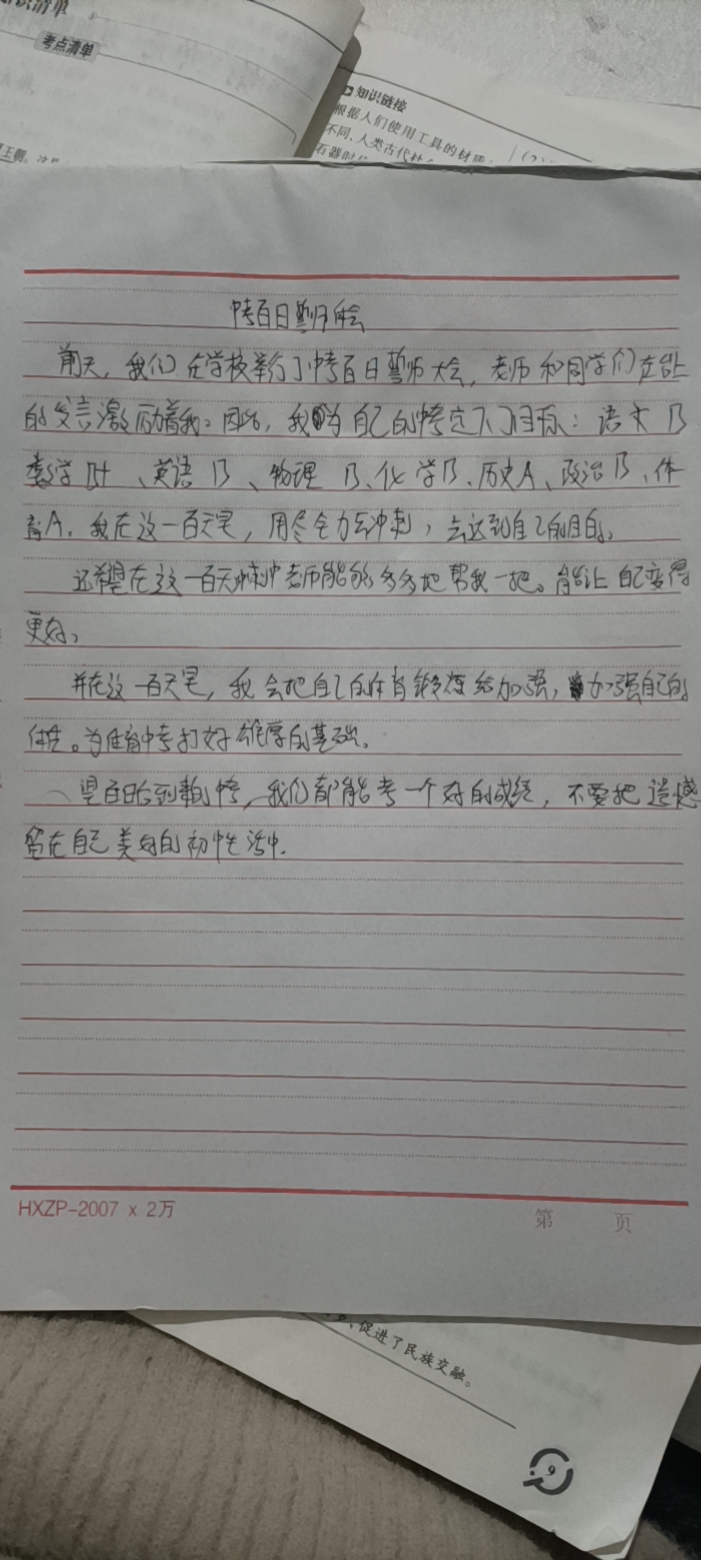 知识清单
考点清单
知识链接
根据人们使用工具的材质
不同，人类古代社会
石器时代
中考百日誓师大会
前天，我们在学校举行了中考百日誓师大会，老师和同学们在台上
的发言激励着我。因此，我为自己的中考定下了目标：语文B
数学B+、英语B、物理B、化学B、历史A、政治B、体
育A。我在这一百天里，用尽全力去冲刺，去达到自己的目的。
还希望在这一百天冲刺中老师能够多多地帮我一把。能让自己变得
更好。
并在这一百天里，我会把自己的体育锻炼给加强，加强自己的
体质。为体育中考打好雄厚的基础。
望百日后到来的中考，我们都能考一个好的成绩，不要把遗憾
留在自己美好的初中生活中.
HXZP-2007 x 2万
第 页
促进了民族交融。
9